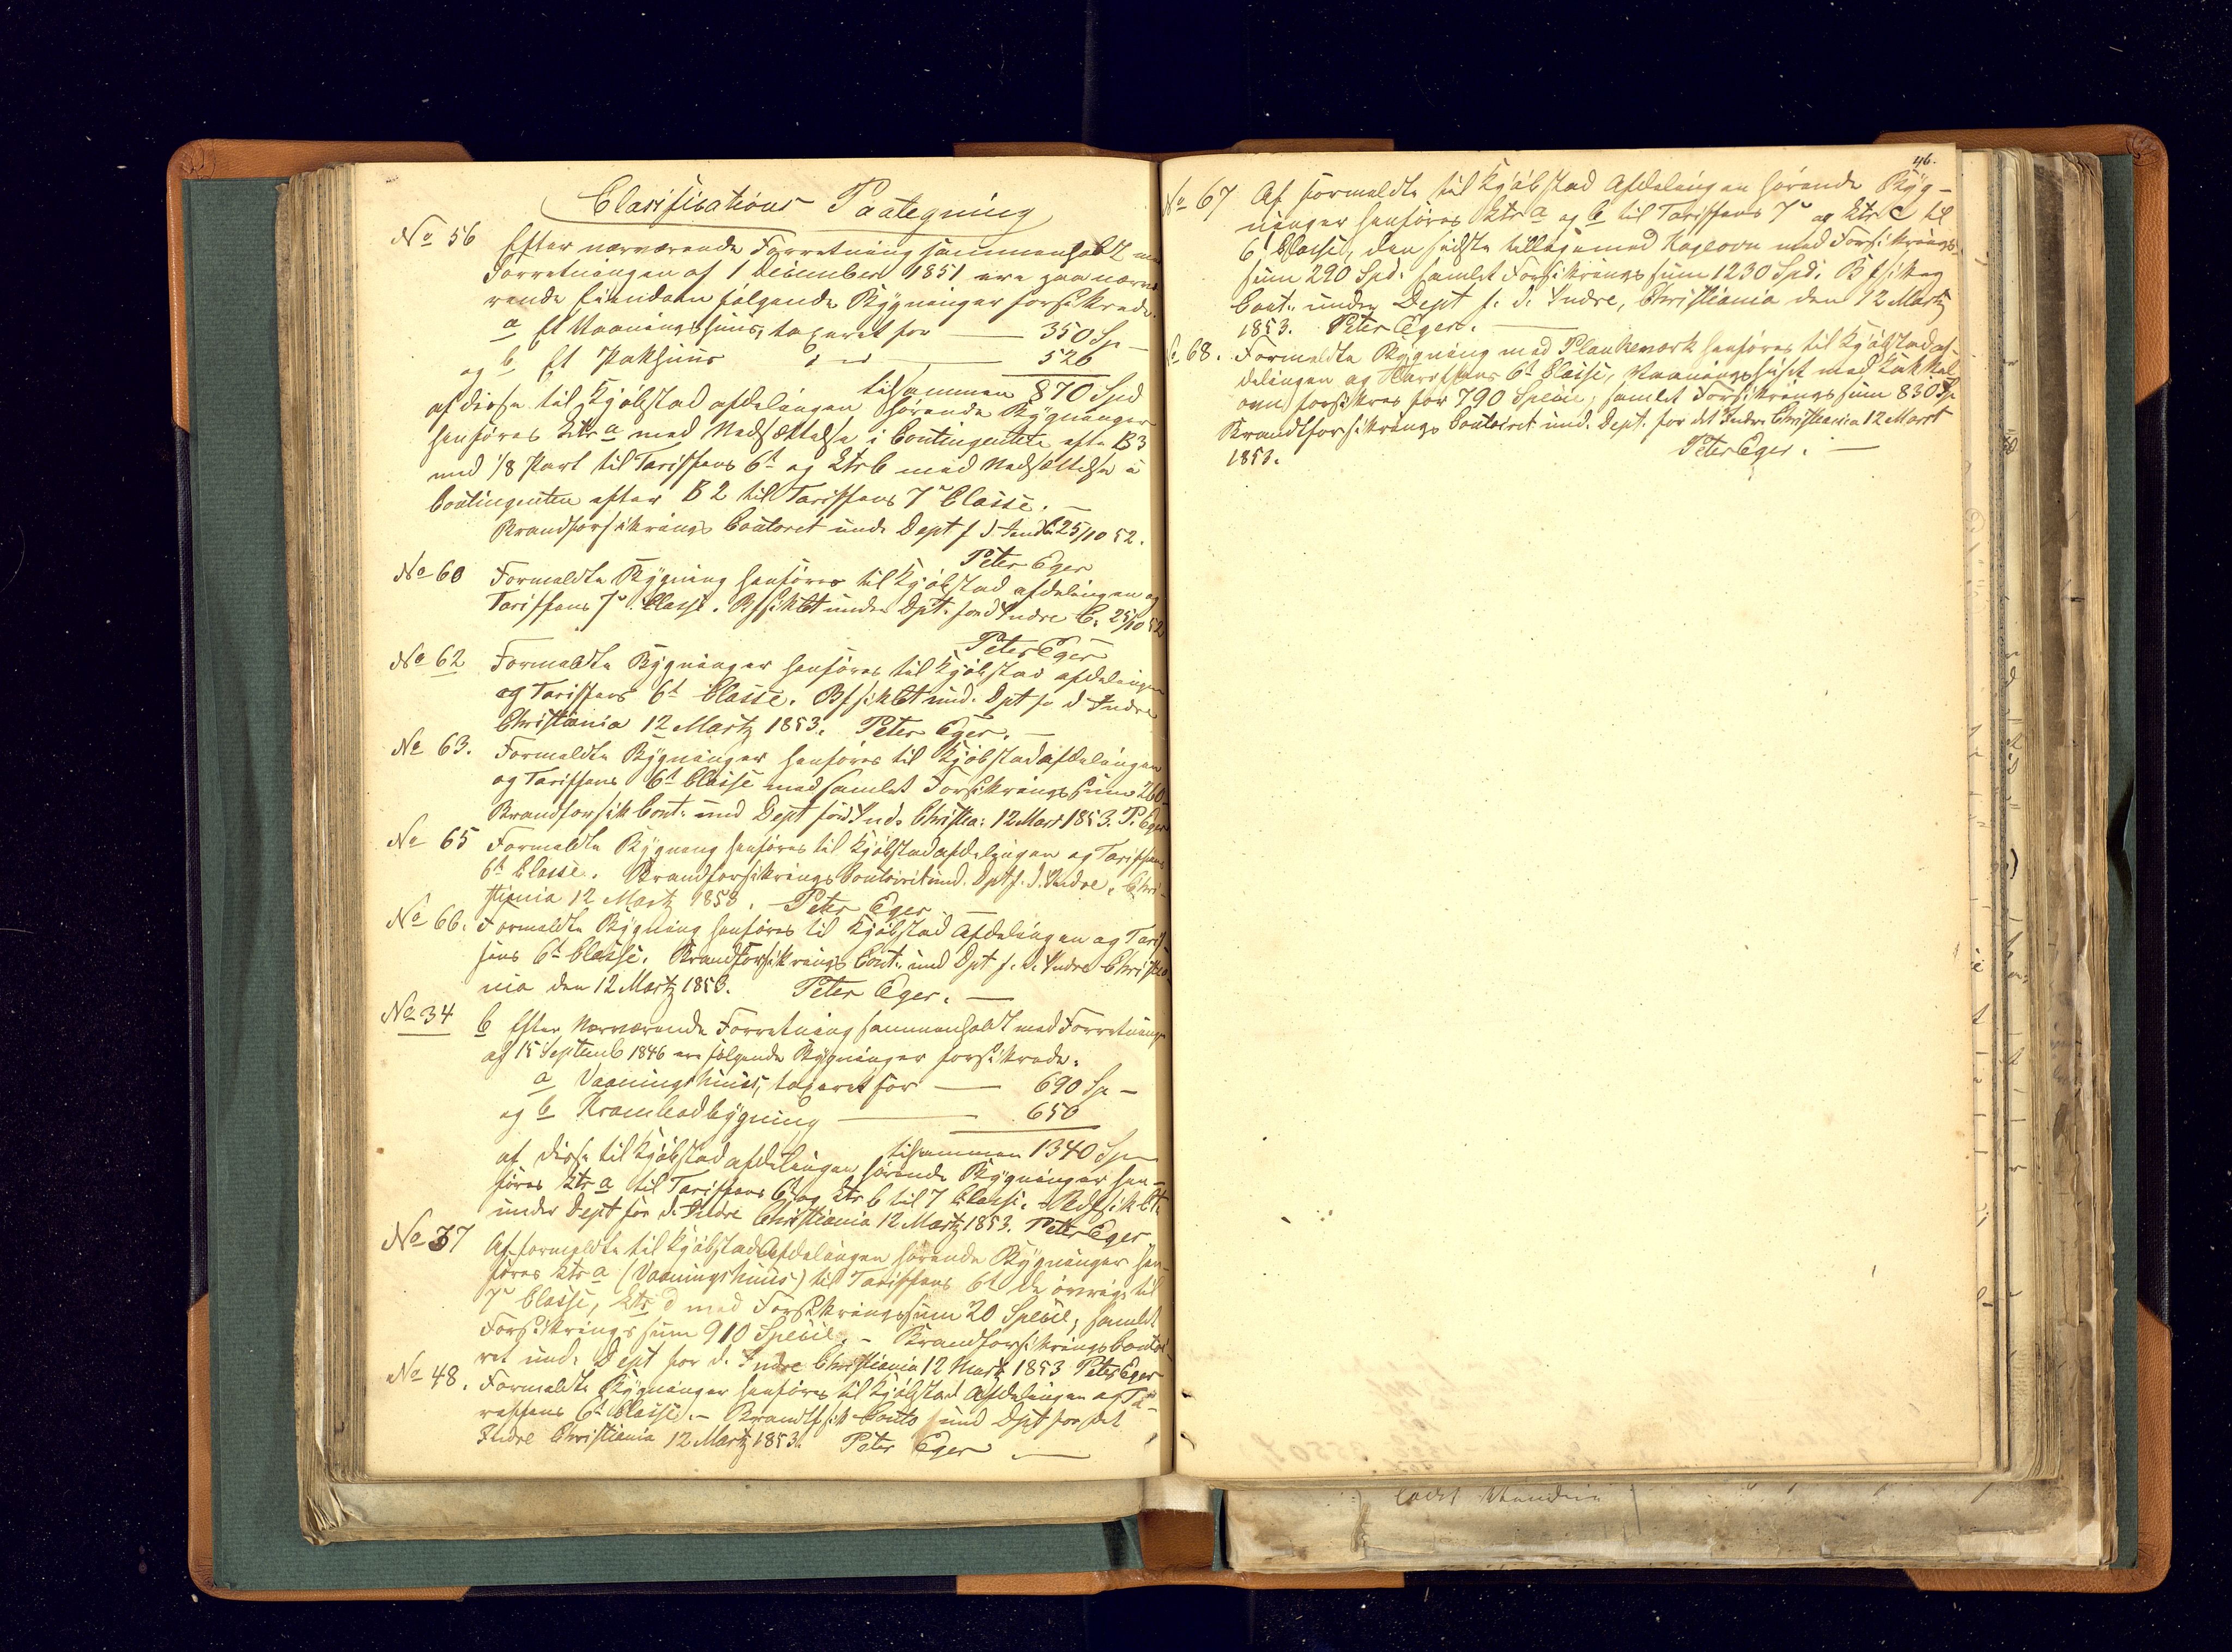 Clasifications Paategning
No 56 Efter nærværende Forretning sammenholdt med
Forretningen af 1 December 1851 ere paa nærvæ
rende Eiendom følgende Bygninger forsikrede.
a Et Vaaningshuus, taxeret for — 350 Sp —
og b Et Pakhuus do — 520
tilsammen 870 Spd
af disse til Kjøbstad afdelingen hørende Bygninger
henføres Ltr a med Nedsættelse i Contingentet efter B3
med 1/8 Part til Tariffens 6t og Ltr b med Nedsættelse i
Contingenten efter B 2 til Tariffens 7de Classe. —
Brandforsikrings Contoret und. Dept f. d. Indre 25/10 52.
Peter Eger
No 60 Formeldte Bygning henføres til Kjøbstad afdelingen og
Tariffens 7de Classe. Bfsik Ct under Dpt. for d Indre C. 25/10 52
Peter Eger
No 62 Formeldte Bygninger henføres til Kjøbstad afdelingen
og Tariffens 6t Classe. Bfsik Ct und. Dpt fo d Indre
Christiania 12 Martz 1853. Peter Eger. —
No 63. Formeldte Bygninger henføres til Kjøbstadafdelingen
og Tariffens 6t Classe med samlet Forsikringssum 260
Brandforsik Cont. und Dept for d Ind. Christia: 12 Mart 1853. P. Eger
No 65 Formeldte Bygning henføres til Kjøbstadafdelingen og Tariffens
6t Classe. Brandforsikrings Contoiret und. Dpt f. d. Indre, Chri-
stiania 12 Martz 1853. Peter Eger
No 66. Formeldte Bygning henføres til Kjøbstad Afdelingen og Tarif-
fens 6t Classe. Brandforsikrings Cont. und Dpt f. d. Indre Christia
nia den 12 Martz 1853. Peter Eger. —
No 34 b Efter Nærværende Forretning sammenholdt med Forretning
af 15 Septemb 1846 ere følgende Bygninger forsikrede.
a Vaaningshuus, taxeret for — 690 Sp —
og b Krambodbygning — 650
tilsammen 1340 Sp
af disse til Kjøbstadafdelingen hørende Bygninger hen-
føres Ltr a til Tariffens 6t og Ltr b til 7 Classe. Bdfsik Ct.
under Dept for d. Indre Christiania 12 Martz 1853. Peter Eger
No 37 Af formeldte til Kjøbstad Afdelingen hørende Bygninger hen-
føres Ltr a (Vaaningshuus) til Tariffens 6t de øvrige til
7de Classe, Ltr d med Forsikringssum 20 Specie, samlet
Forsikringssum 910 Specie. — Brandforsikrings Contoi-
ret und. Dept for d. Indre Christiania 12 Mart 1853 Peter Eger
No 48. Formeldte Bygninger henføres til Kjøbstad Afdelingen og Ta-
riffens 6t Classe. — Brandtfsik Conto und Dpt for det
Indre Christiania 12 Martz 1853. Peter Eger —
46.
No 67 Af formeldte til Kjøbstad Afdelingen hørende Byg-
ninger henføres Ltr a og b til Tariffens 7de og Ltr c til
6t Classe, den sidste tilligemed Kogeovn med Forsikrings-
sum 290 Spd. samlet Forsikringssum 1230 Spd. Bfsikng
Cont. under Dept f. d. Indre, Christiania den 12 Martz
1853. Peter Eger. —
No 68. Formeldte Bygning med Plankeværk henføres til Kjøbstadaf-
delingen og Tariffens 6t Classe, Vaaningshuset med Kakkel
ovn forsikres for 790 Specie, samlet Forsikringssum 830 Sp
Brandtforsikrings Contoiret und. Dept. for det Indre Christiania 12 Mart
1853. Peter Eger. —